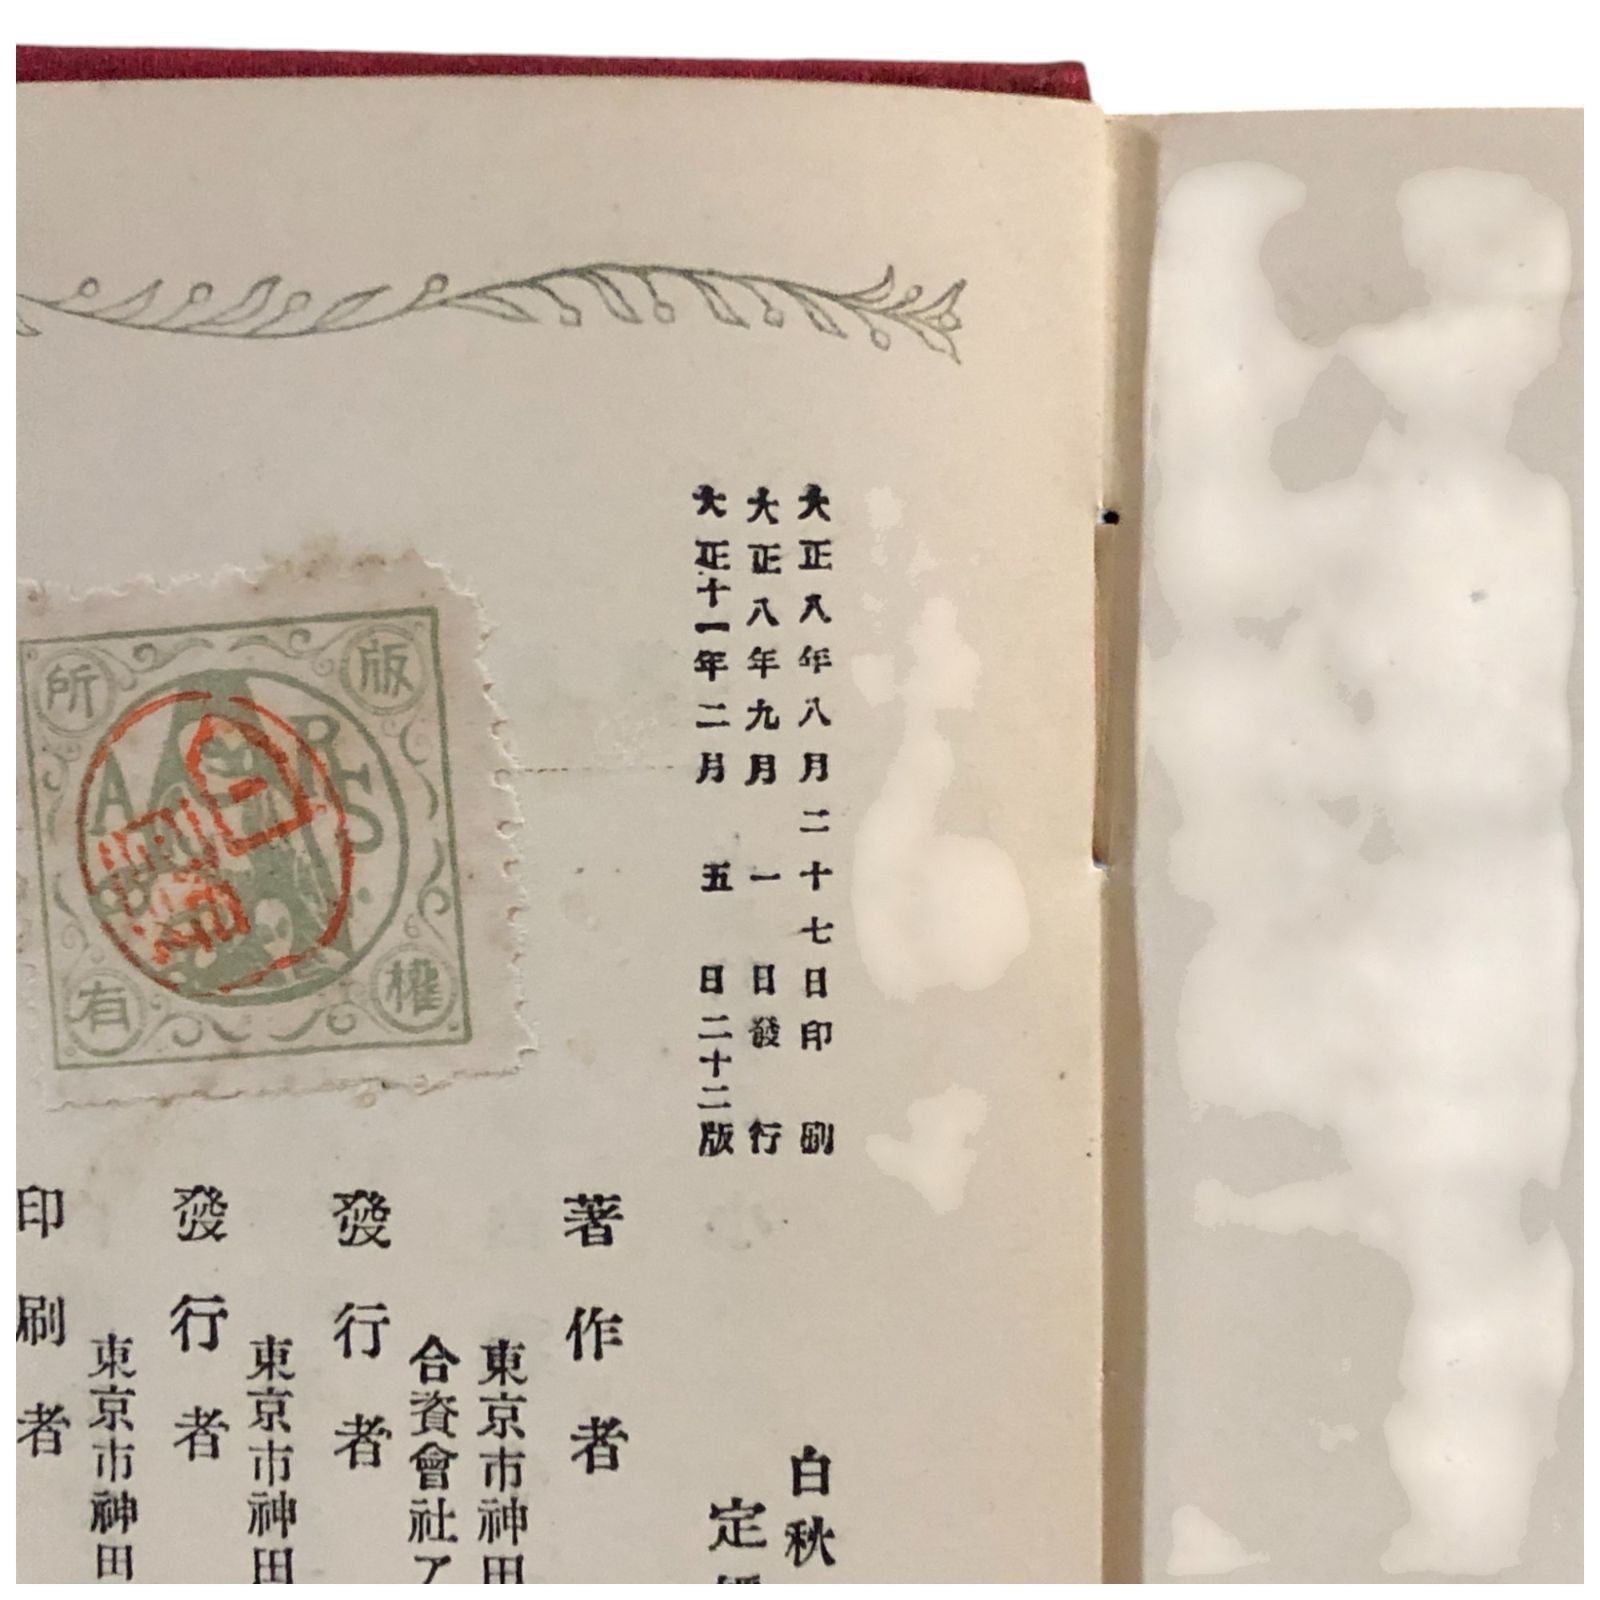 大正八年八月二十七日印刷
大正八年九月一日發行
大正十一年二月五日二十二版
白秋
定
著作者
東京市神田
合資會社ア
發行者
東京市神田
發行者
東京市神田
印刷者
版權所有
ARS